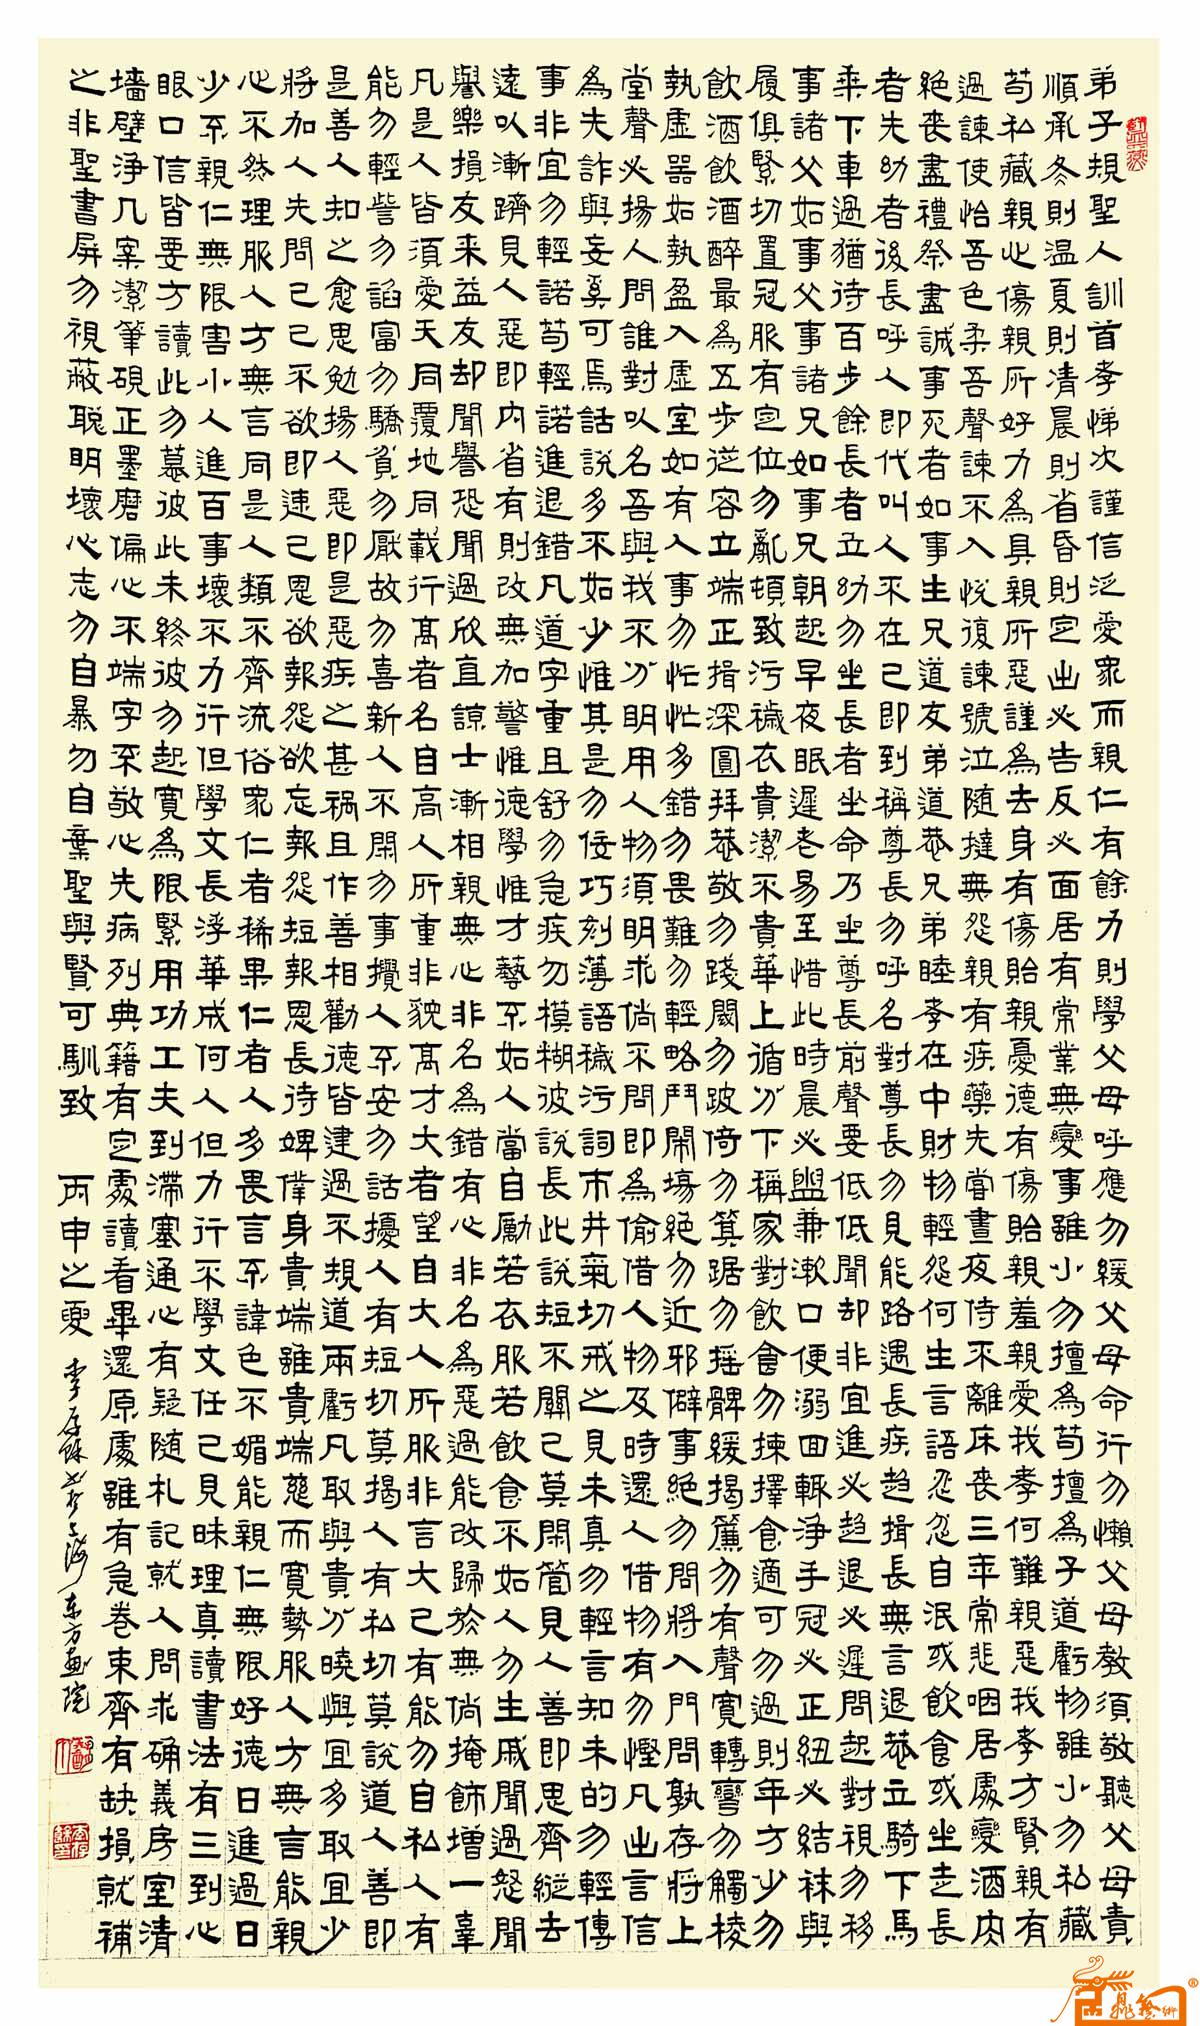 弟子規聖人訓首孝悌次謹信泛愛眾而親仁有餘力則學父母呼應勿緩父母命行勿懶父母教須敬聽父母責
順承冬則温夏則凊晨則省昏則定出必告反必面居有常業無變事雖小勿擅為苟擅為子道虧物雖小勿私藏
苟私藏親心傷親所好力為具親所惡謹為去身有傷貽親憂德有傷貽親羞親愛我孝何難親惡我孝方賢親有
過諫使怡吾色柔吾聲諫不入悅復諫號泣隨撻無怨親有疾藥先嘗晝夜侍不離床喪三年常悲咽居處變酒肉
絕喪盡禮祭盡誠事死者如事生兄道友弟道恭兄弟睦孝在中財物輕怨何生言語忍忿自泯或飲食或坐走長
者先幼者後長呼人即代叫人不在己即到稱尊長勿呼名對尊長勿見能路遇長疾趨揖長無言退恭立騎下馬
乘下車過猶待百步餘長者立幼勿坐長者坐命乃坐尊長前聲要低低聞却非宜進必趨退必遲問起對視勿移
事諸父如事父事諸兄如事兄朝起早夜眠遲老易至惜此時晨必盥兼漱口便溺回輒淨手冠必正紐必結袜與
履俱緊切置冠服有定位勿亂頓致污穢衣貴潔不貴華上循分下稱家對飲食勿揀擇食適可勿過則年方少勿
飲酒飲酒醉最為丑步從容立端正揖深圓拜恭敬勿踐閾勿跛倚勿箕踞勿搖髀緩揭簾勿有聲寬轉彎勿觸棱
執虛器如執盈入虛室如有人事勿忙忙多錯勿畏難勿輕略鬥鬧場絕勿近邪僻事絕勿問將入門問孰存將上
堂聲必揚人問誰對以名吾與我不分明用人物須明求倘不問即為偷借人物及時還人借物有勿慳凡出言信
為先詐與妄奚可焉話說多不如少惟其是勿佞巧刻薄語穢污詞市井氣切戒之見未真勿輕言知未的勿輕傳
事非宜勿輕諾苟輕諾進退錯凡道字重且舒勿急疾勿模糊彼說長此說短不關己莫閑管見人善即思齊縱去
遠以漸躋見人惡即內省有則改無加警惟德學惟才藝不如人當自勵若衣服若飲食不如人勿生戚聞過怒聞
譽樂損友來益友却聞譽恐聞過欣直諒士漸相親無心非名為錯有心非名為惡過能改歸於無倘掩飾增一辜
凡是人皆須愛天同覆地同載行高者名自高人所重非貌高才大者望自大人所服非言大己有能勿自私人有
能勿輕訾勿諂富勿驕貧勿厭故勿喜新人不閑勿事攪人不安勿話擾人有短切莫揭人有私切莫說道人善即
是善人知之愈思勉揚人惡即是惡疾之甚禍且作善相勸德皆建過不規道兩虧凡取與貴分曉與宜多取宜少
將加人先問己己不欲即速已恩欲報怨欲忘報怨短報恩長待婢僕身貴端雖貴端慈而寬勢服人方無言能親
心不然理服人方無言同是人類不齊流俗眾仁者稀果仁者人多畏言不諱色不媚能親仁無限好德日進過日
少不親仁無限害小人進百事壞不力行但學文長浮華成何人但力行不學文任己見昧理真讀書法有三到心
眼口信皆要方讀此勿慕彼此未終彼勿起寬為限緊用功工夫到滯塞通心有疑隨札記就人問求确義房室清
墻壁淨几案潔筆硯正墨磨偏心不端字不敬心先病列典籍有定處讀看畢還原處雖有急卷束齊有缺損就補
之非聖書屏勿視蔽聰明壞心志勿自暴勿自棄聖與賢可馴致 丙申之夏 李存 書於上海东方画院